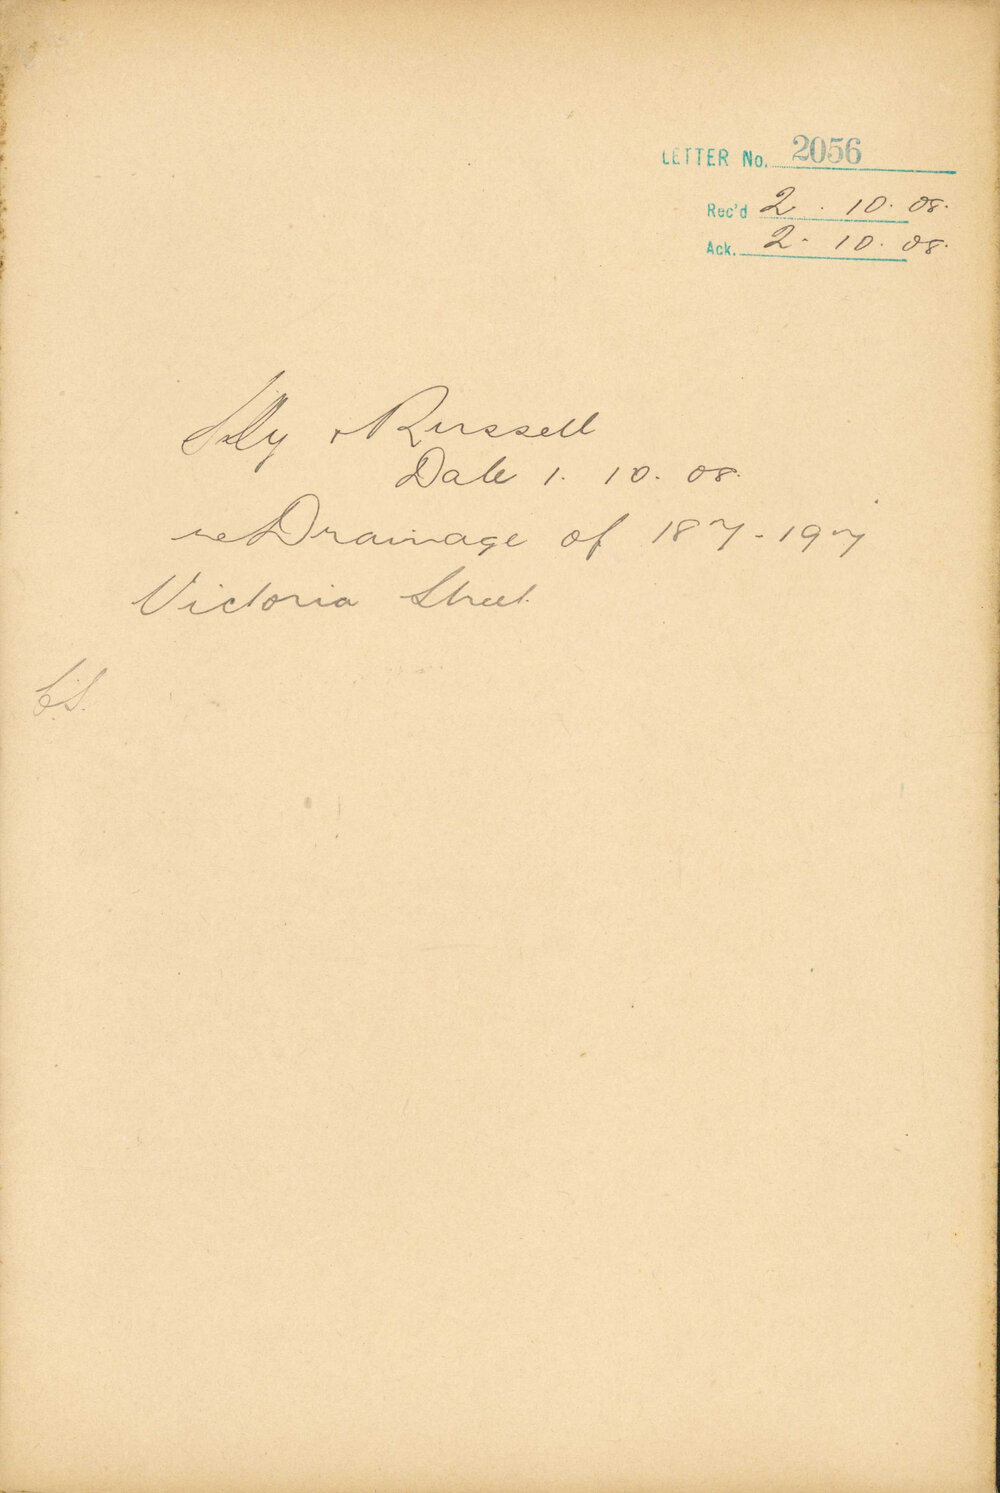 LETTER No. 2056
Rec'd 2. 10. 08.
Ack. 2. 10. 08.
& Russell
Date 1. 10. 08.
re Drainage of 187-197
Victoria Street